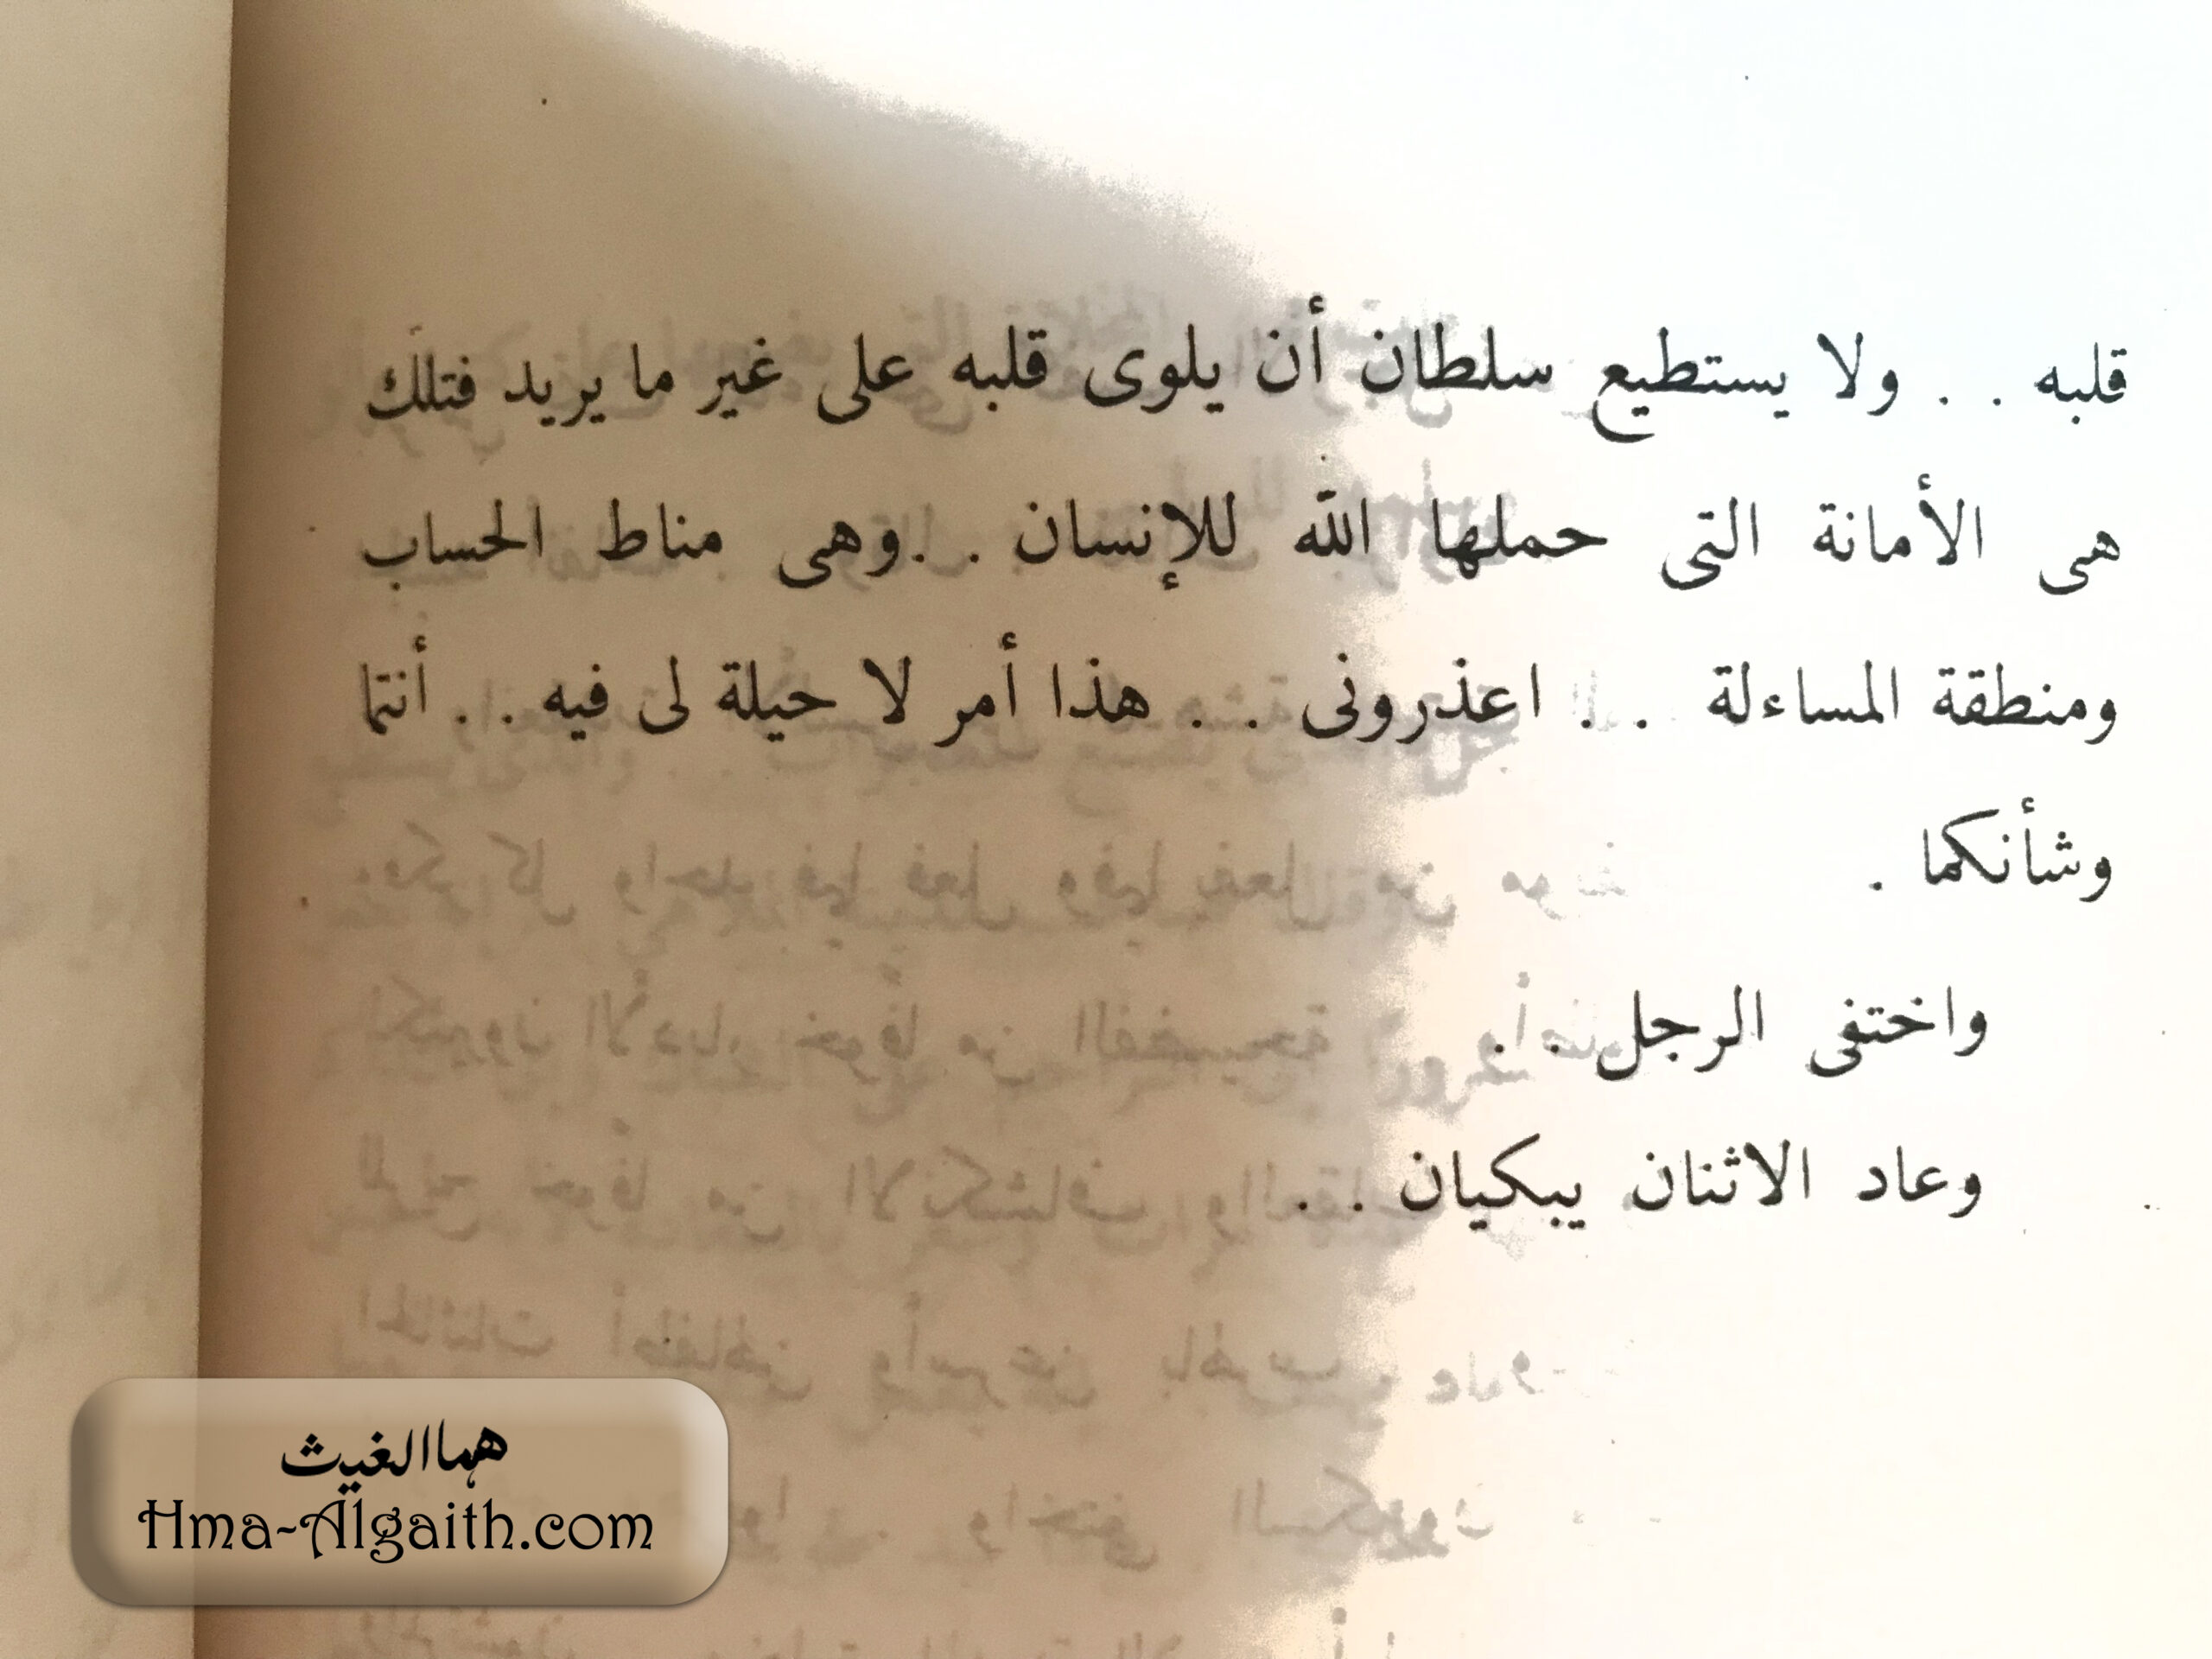 قلبه . . ولا يستطيع سلطان أن يلوى قلبه على غير ما يريد فتلك
هى الأمانة التى حملها الله للإنسان . . وهى مناط الحساب
ومنطقة المساءلة . . اعذرونى . . هذا أمر لا حيلة لى فيه . . أنتما
وشأنكما .
واختفى الرجل . .
وعاد الاثنان يبكيان . .
هما الغيث
Hma-Algaith.com